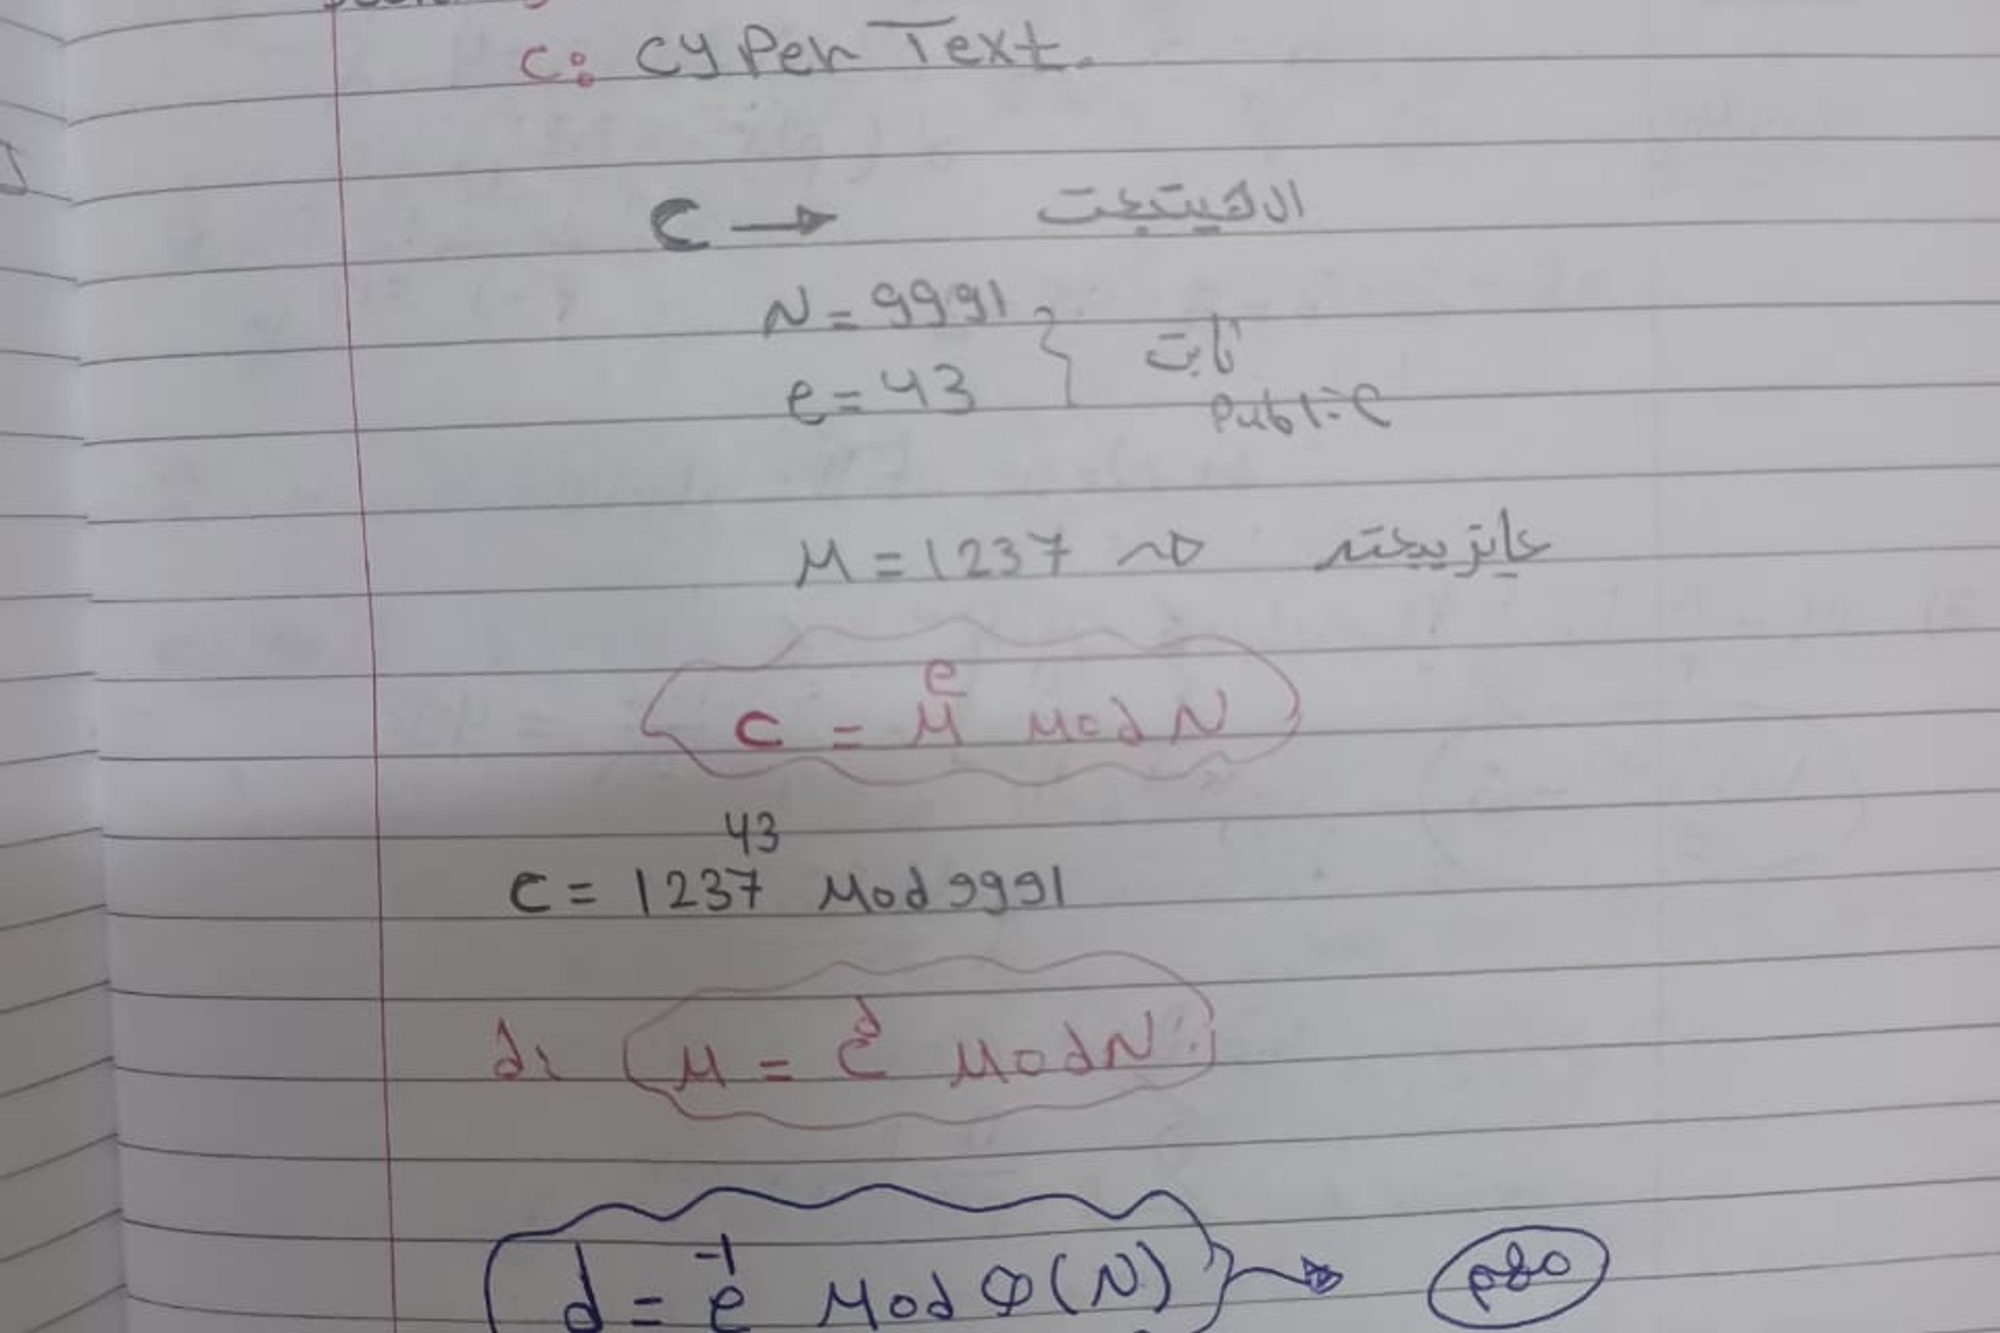 C: CyPer Text.
C → الاهيتبعت
N = 9991
e = 43 } ثابت
Public
M = 1237 ⇝ عايز يبعته
C = M^e Mod N
C = 1237^43 Mod 9991
d: M = C^d Mod N
d = e^-1 Mod φ(N) → مهم